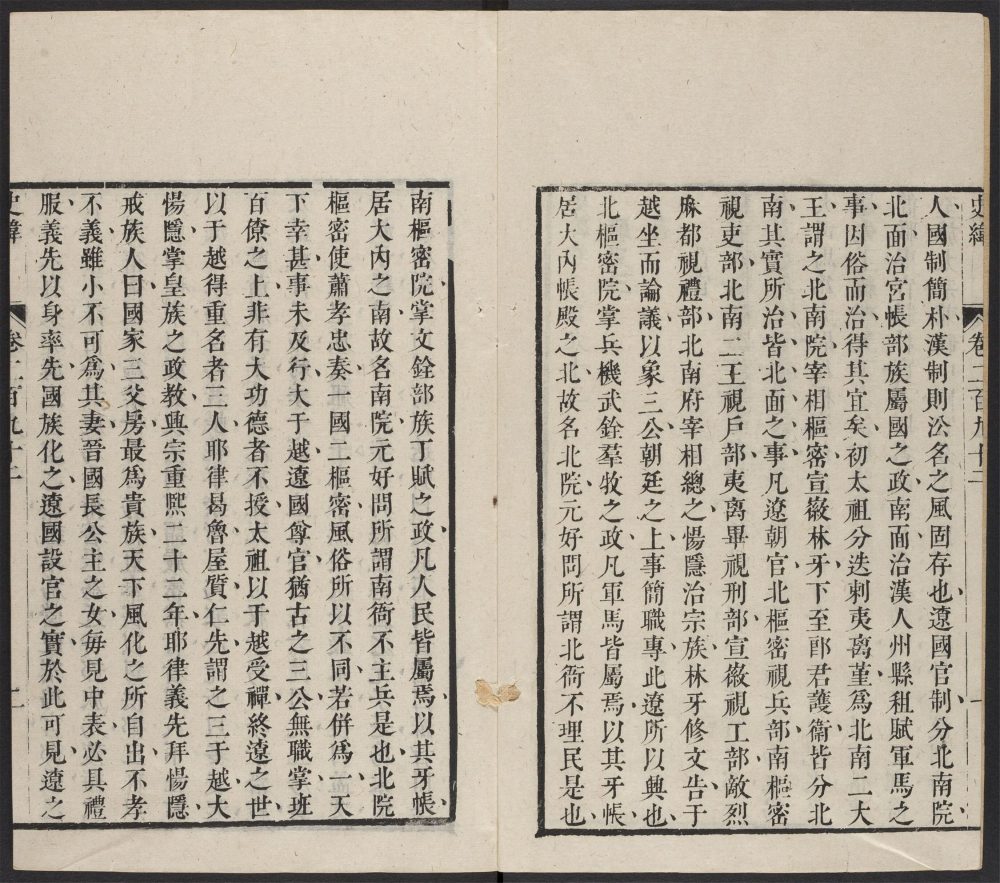 史緯 卷二百九十二 一
人國制簡朴漢制則㳂名之風固存也遼國官制分北南院
北面治宮帳部族屬國之政南面治漢人州縣租賦軍馬之
事因俗而治得其宜矣初太祖分迭剌夷离堇爲北南二大
王謂之北南院宰相樞密宣徽林牙下至郎君護衛皆分北
南其實所治皆北面之事凡遼朝官北樞密視兵部南樞密
視吏部北南二王視戶部夷离畢視刑部宣徽視工部敵烈
麻都視禮部北南府宰相總之惕隱治宗族林牙修文告于
越坐而論議以象三公朝廷之上事簡職專此遼所以興也
北樞密院掌兵機武銓羣牧之政凡軍馬皆屬焉以其牙帳
居大內帳殿之北故名北院元好問所謂北衙不理民是也
南樞密院掌文銓部族丁賦之政凡人民皆屬焉以其牙帳
居大內之南故名南院元好問所謂南衙不主兵是也北院
樞密使蕭孝忠奏一國二樞密風俗所以不同若併爲一天
下幸甚事未及行大于越遼國尊官猶古之三公無職掌班
百僚之上非有大功德者不授太祖以于越受禪終遼之世
以于越得重名者三人耶律曷魯屋質仁先謂之三于越大
惕隱掌皇族之政教興宗重熙二十二年耶律義先拜惕隱
戒族人曰國家三父房最爲貴族天下風化之所自出不孝
不義雖小不可爲其妻晉國長公主之女每見中表必具禮
服義先以身率先國族化之遼國設官之實於此可見遼之
史緯 卷二百九十二 二